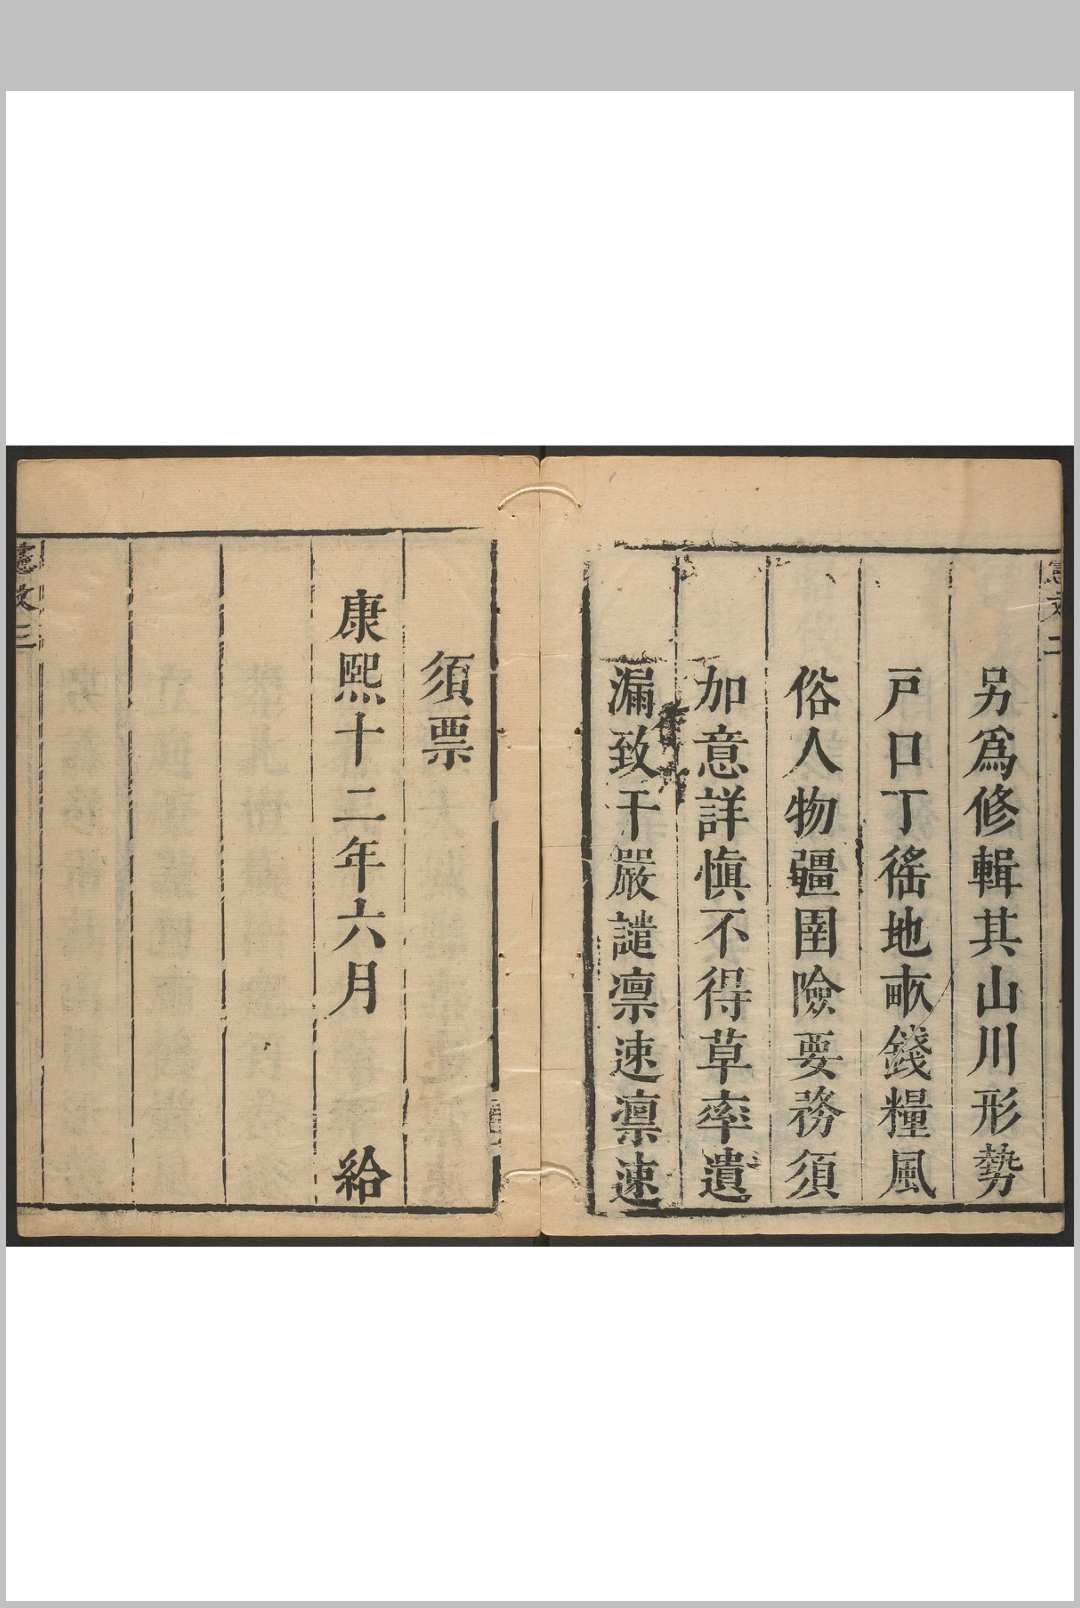 憲文二
另爲修輯其山川形勢
戸口丁徭地畝錢糧風
俗人物疆圉險要務須
加意詳慎不得草率遺
漏致干嚴譴凛速凛速
須票
康熙十二年六月　給
憲文三